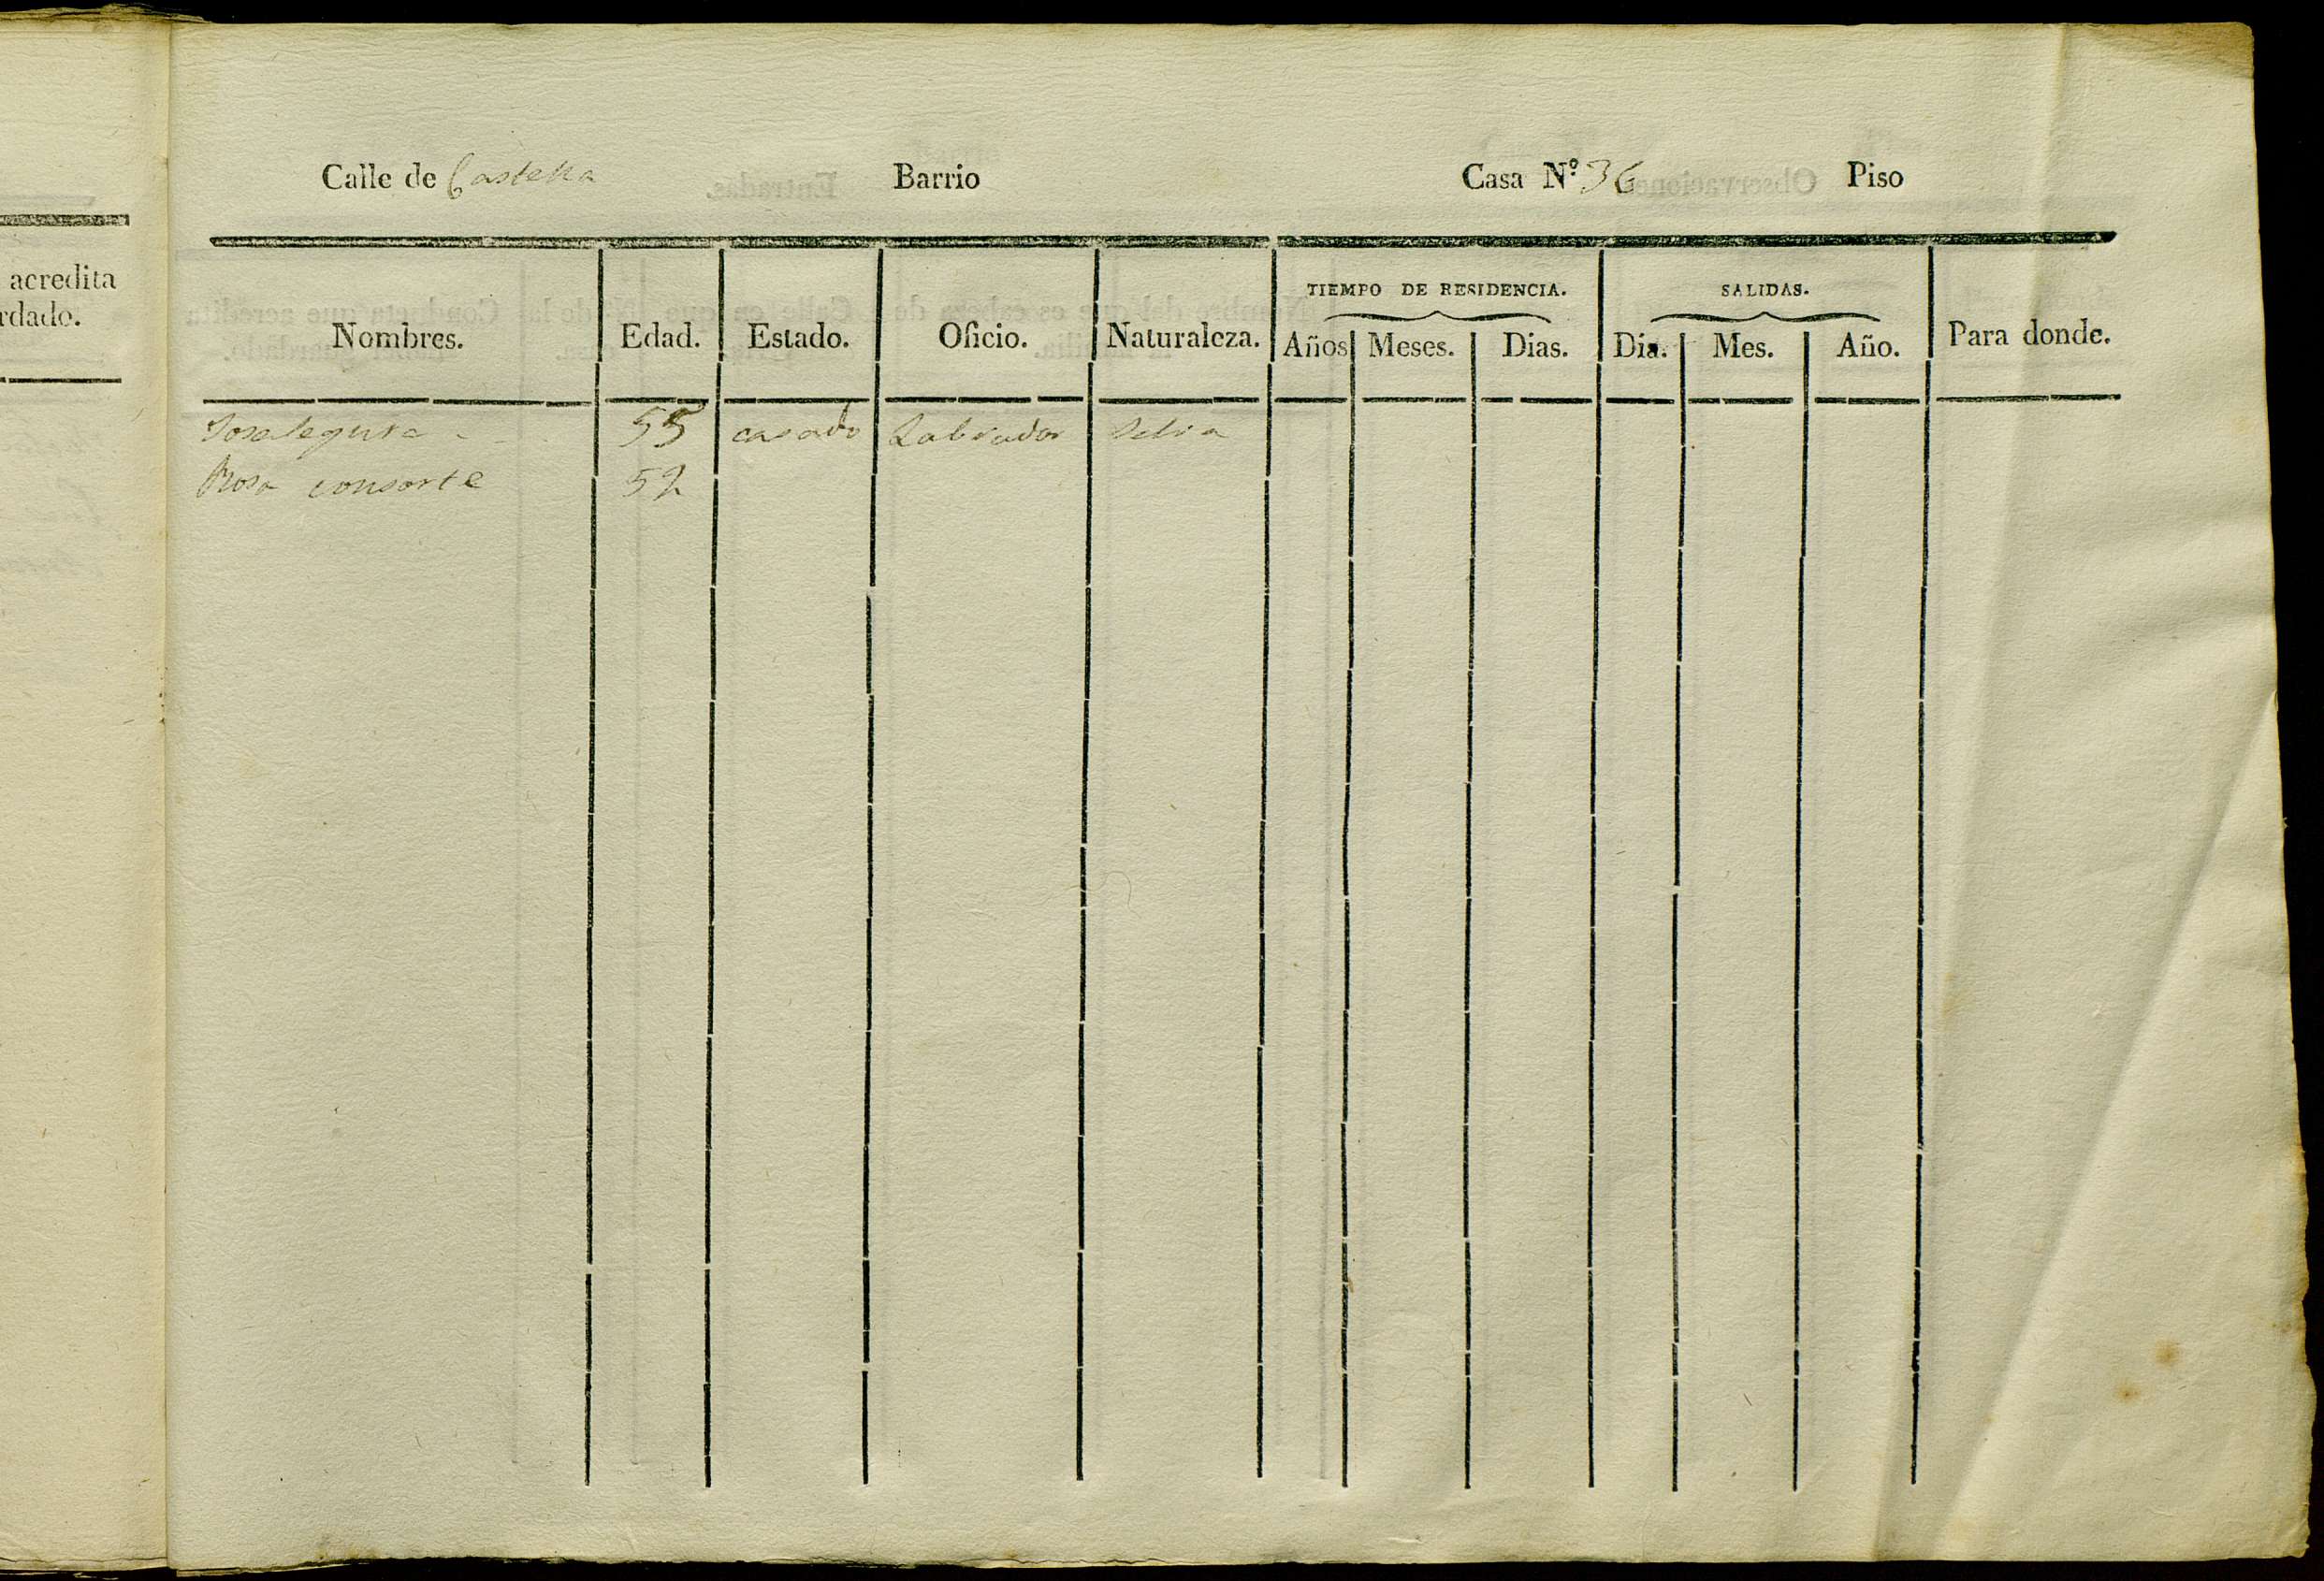 acredita
rdado.
Calle de Castella Barrio Casa N.º 36 Piso
TIEMPO DE RESIDENCIA. SALIDAS.
Nombres. Edad. Estado. Oficio. Naturaleza. Años Meses. Dias. Dia. Mes. Año. Para donde.
55 casado Labrador Selva
Rosa consorte 52